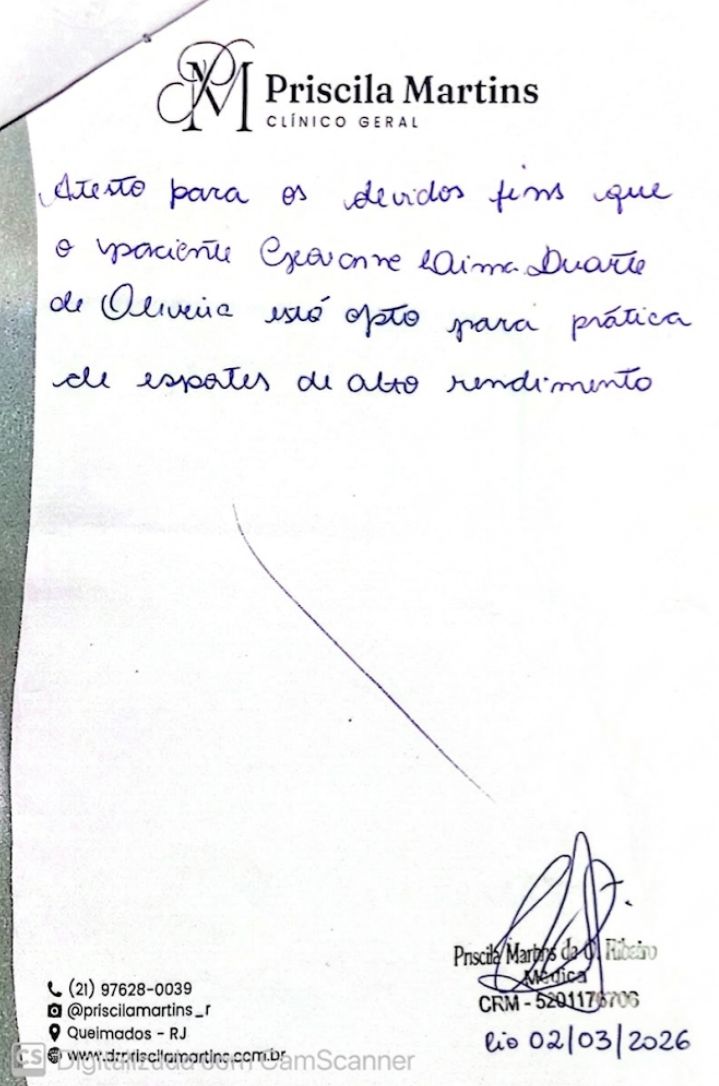 PM Priscila Martins
CLÍNICO GERAL
Atesto para os devidos fins que
o paciente Geovanne Laima Duarte
de Oliveira está apto para prática
de esportes de alto rendimento
Priscila Martins da Ribeiro
Médica
CRM - 5201176706
Rio 02/03/2026
(21) 97628-0039
@priscilamartins_r
Queimados - RJ
www.drpriscilamartins.com.br
CS Digitalizada com CamScanner